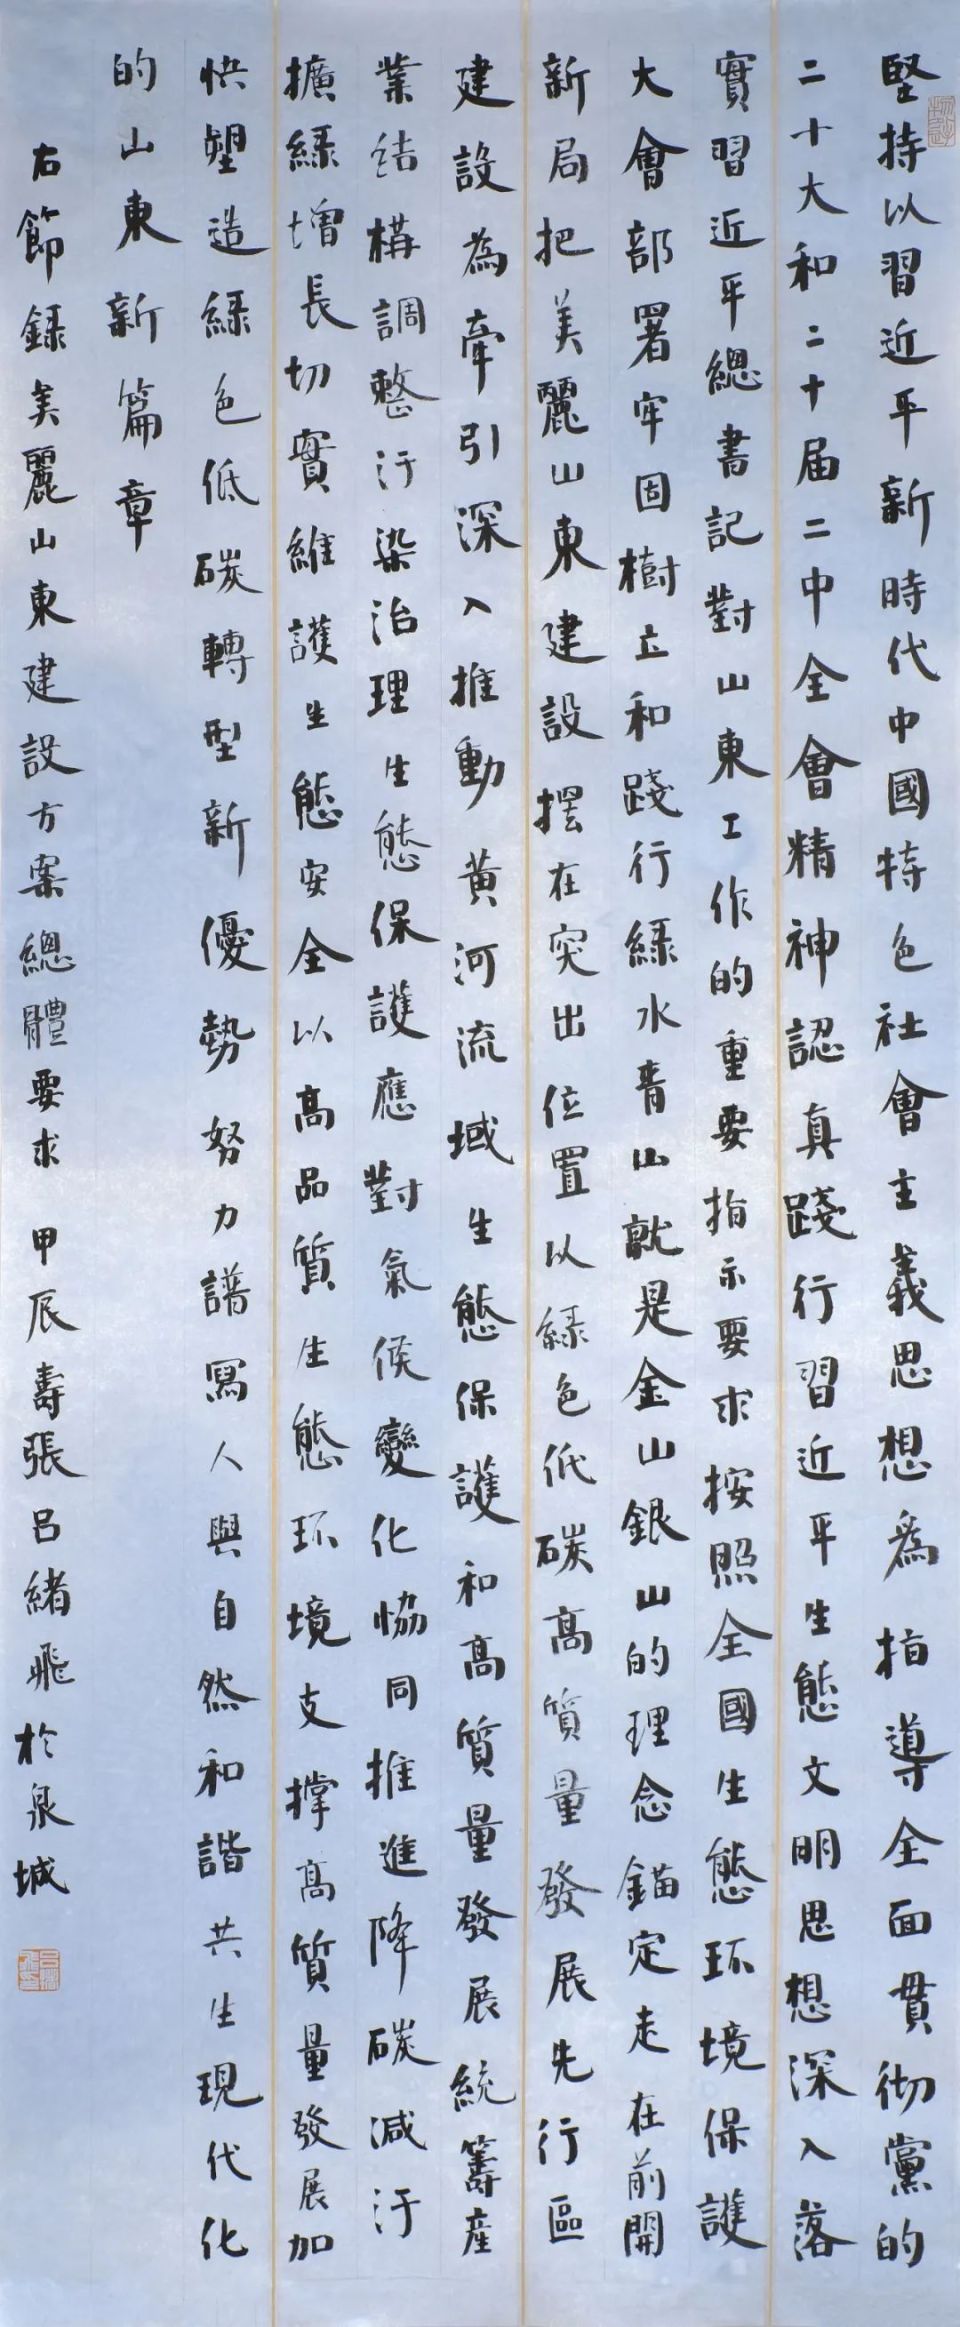 堅持以習近平新時代中國特色社會主義思想為指導全面貫彻黨的
二十大和二十届二中全會精神認真踐行習近平生態文明思想深入落
實習近平總書記對山東工作的重要指示要求按照全國生態环境保護
大會部署牢固樹立和踐行緑水青山就是金山銀山的理念錨定走在前開
新局把美麗山東建設摆在突出位置以緑色低碳高質量發展先行區
建設為牽引深入推動黄河流域生態保護和高質量發展統籌産
業结構調整汙染治理生態保護應對氣候變化協同推進降碳減汙
擴緑增長切實維護生態安全以高品質生態环境支撑高質量發展加
快塑造緑色低碳轉型新優勢努力譜寫人與自然和諧共生現代化
的山東新篇章
右節録美麗山東建設方案總體要求 甲辰壽張吕緒飛於泉城